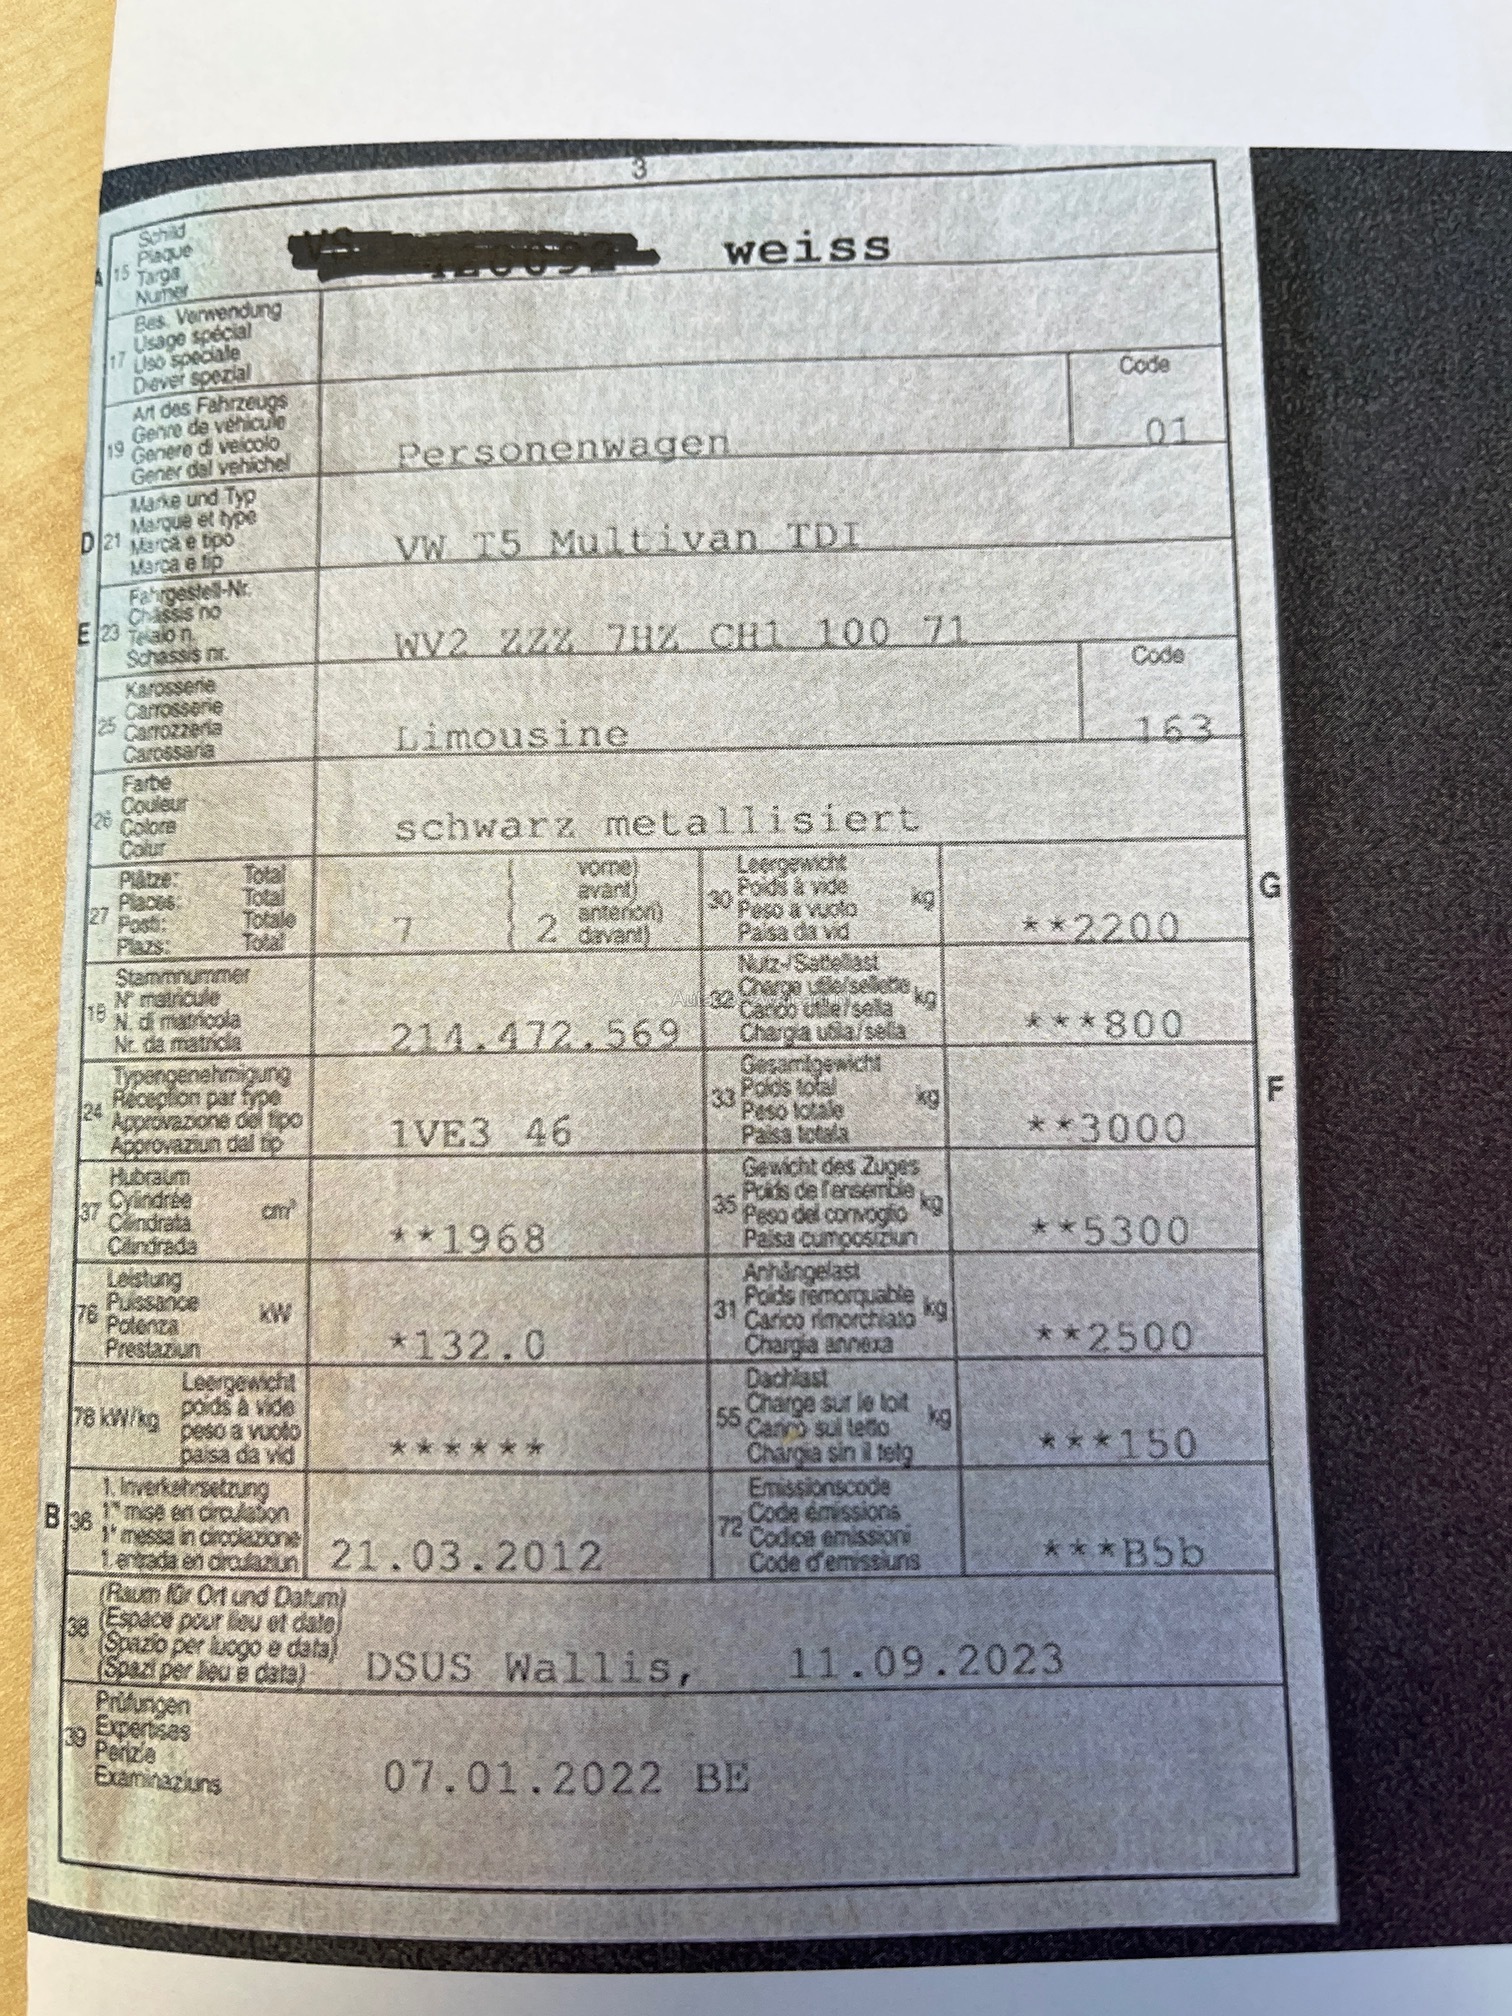 3
A 15 Schild
Plaque
Targa
Numer
weiss
17 Bes. Verwendung
Usage spécial
Uso speciale
Diever spezial
19 Art des Fahrzeugs
Genre de véhicule
Genere di veicolo
Gener dal vehichel
Personenwagen
Code
01
D 21 Marke und Typ
Marque et type
Marca e tipo
Marca e tip
VW T5 Multivan TDI
E 23 Fahrgestell-Nr.
Châssis no
Telaio n.
Schassis nr.
WV2 ZZZ 7HZ CH1 100 71
25 Karosserie
Carrosserie
Carrozzeria
Carossaria
Limousine
Code
163
26 Farbe
Couleur
Colore
Colur
schwarz metallisiert
27 Plätze: Total
Places: Total
Posti: Totale
Plazs: Total
7 ( 2 vorne)
avant)
anteriori)
davant)
30 Leergewicht
Poids à vide
Peso a vuoto
Paisa da vid
kg
**2200
G
18 Stammnummer
N° matricule
N. di matricola
Nr. da matricla
214.472.569
32 Nutz-/Sattellast
Charge utile/sellette
Carico utile/sella
Chargia utila/sella
kg
***800
24 Typengenehmigung
Réception par type
Approvazione del tipo
Approvaziun dal tip
1VE3 46
33 Gesamtgewicht
Poids total
Peso totale
Paisa totala
kg
**3000
F
37 Hubraum
Cylindrée
Cilindrata
Cilindrada
cm³
**1968
35 Gewicht des Zuges
Poids de l'ensemble
Peso del convoglio
Paisa cumposiziun
kg
**5300
76 Leistung
Puissance
Potenza
Prestaziun
kW
*132.0
31 Anhängelast
Poids remorquable
Carico rimorchiato
Chargia annexa
kg
**2500
78 kW/kg
Leergewicht
poids à vide
peso a vuoto
paisa da vid
******
55 Dachlast
Charge sur le toit
Carico sul tetto
Chargia sin il tetg
kg
***150
B 36 1. Inverkehrsetzung
1re mise en circulation
1a messa in circolazione
1. entrada en circulaziun
21.03.2012
72 Emissionscode
Code émissions
Codice emissioni
Code d'emissiuns
***B5b
38 (Raum für Ort und Datum)
(Espace pour lieu et date)
(Spazio per luogo e data)
(Spazi per lieu e data)
DSUS Wallis, 11.09.2023
39 Prüfungen
Expertises
Perizie
Examinaziuns
07.01.2022 BE